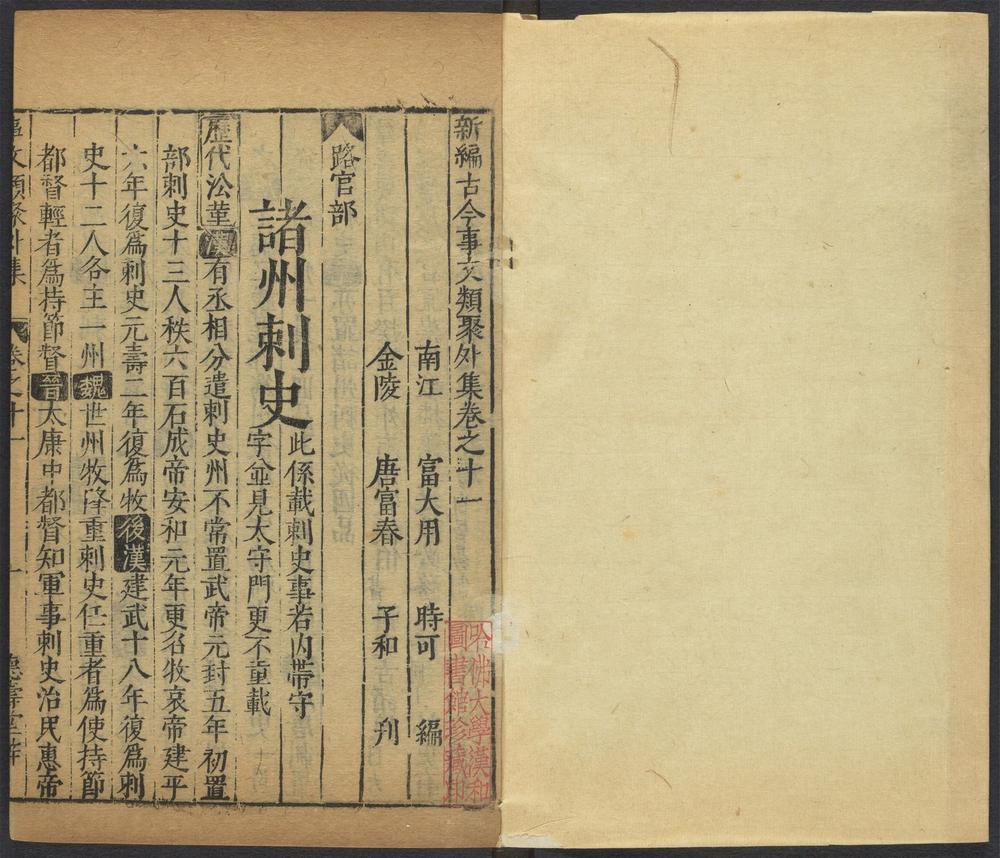 新編古今事文類聚外集卷之十一
南江 富大用 時可 編
金陵 唐富春 子和 刋
路官部
諸州刺史
此係載刺史事若内帶守
字並見太守門更不重載
歷代沿革漢有丞相分遣刺史州不常置武帝元封五年初置
部刺史十三人秩六百石成帝安和元年更名牧哀帝建平
六年復爲刺史元壽二年復爲牧後漢建武十八年復爲刺
史十二人各主一州魏世州牧隆重刺史任重者爲使持節
都督輕者爲持節督晉太康中都督知軍事刺史治民惠帝
事文類聚外集 卷之十一
德壽堂梓
哈佛大學漢和
圖書館珍藏印